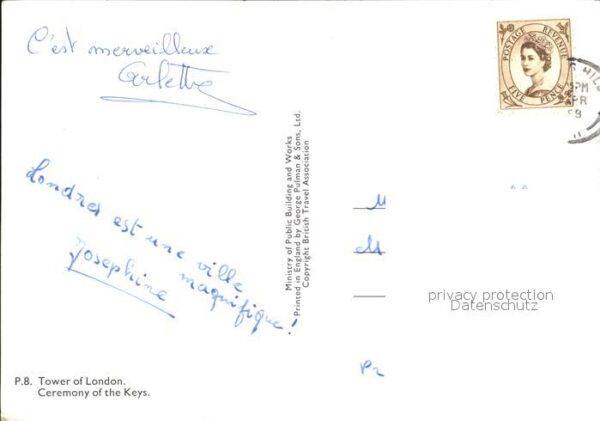 C'est merveilleux
Arlette
Londres est une ville
magnifique!
Josephine
P.8. Tower of London.
Ceremony of the Keys.
Ministry of Public Building and Works
Printed in England by George Pulman & Sons, Ltd.
Copyright British Travel Association
POSTAGE REVENUE
FIVE PENCE
PM
PR
M
privacy protection
Datenschutz